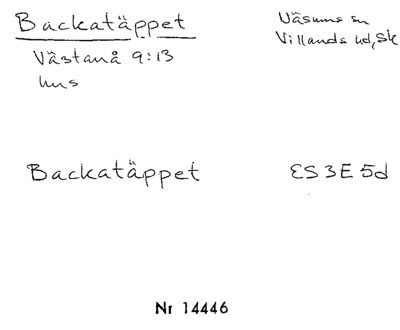 Backatäppet
Västanå 9:13
hus
Väsums sn
Villands hd, Sk
Backatäppet
ES 3E 5d
Nr 14446